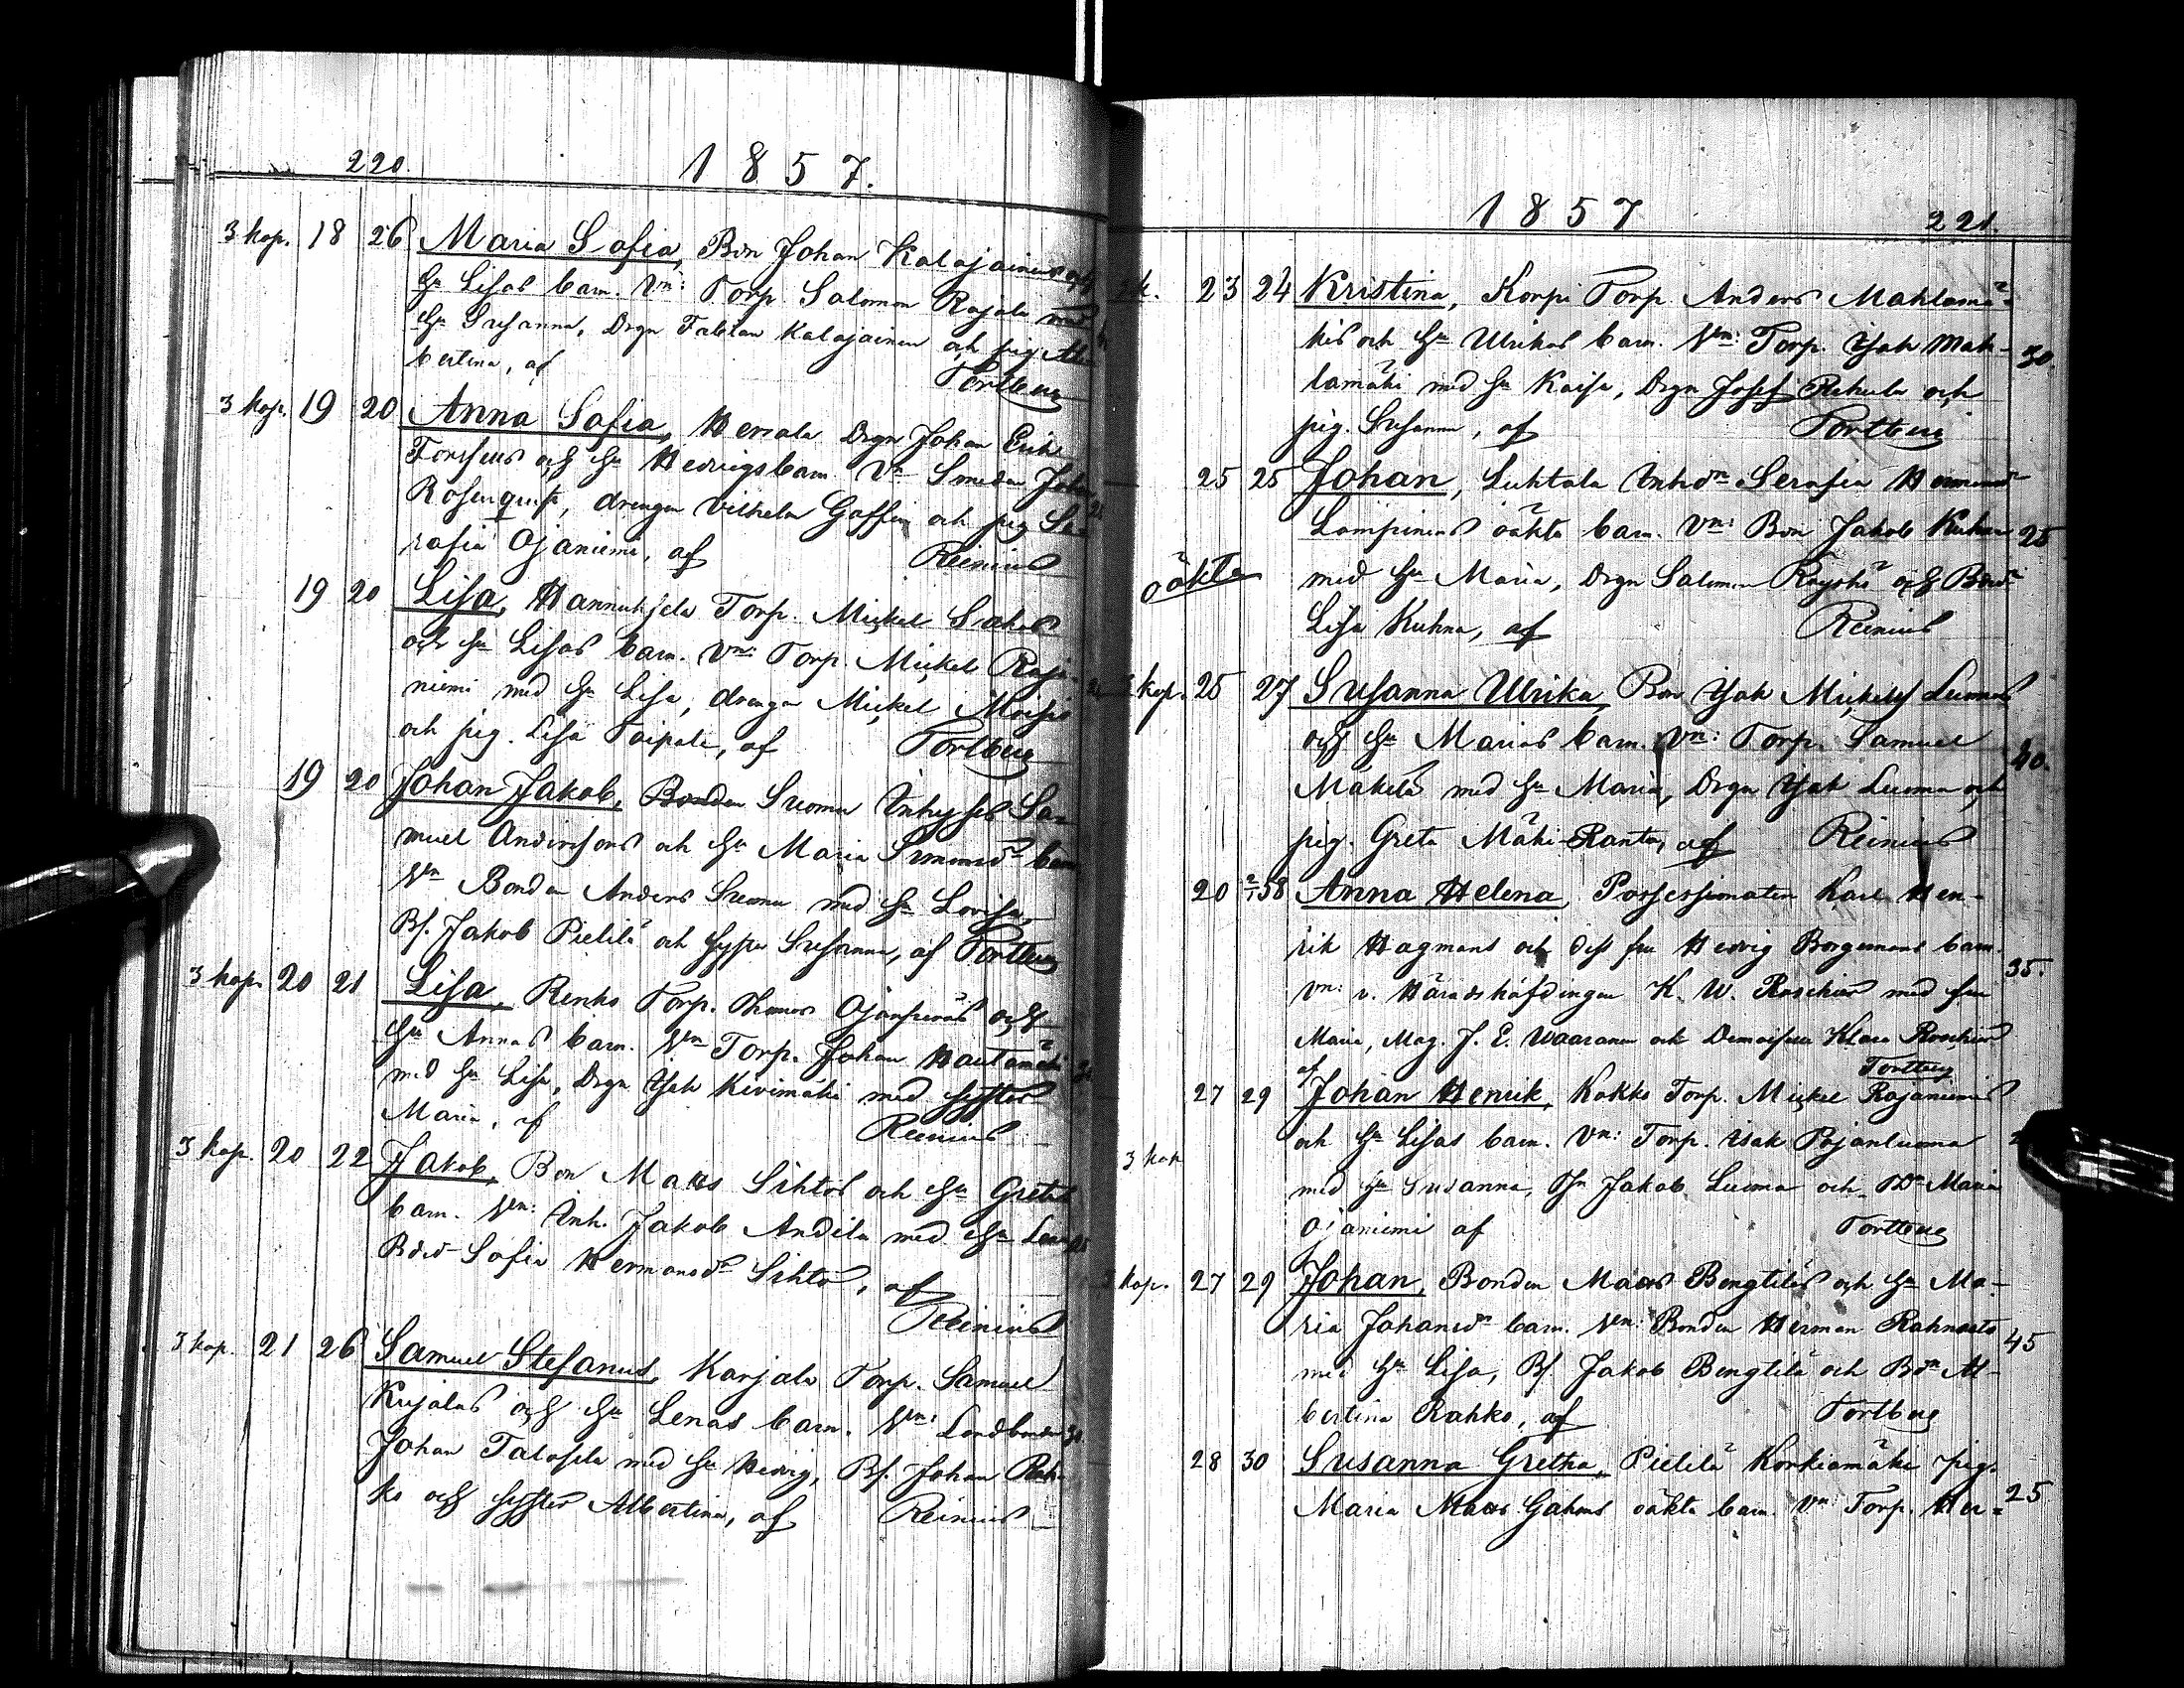 220. 1857.
3 kop. 18 26 Maria Sofia, Bon Johan Kalajainens och
Hu Lisas barn. Vn: Torp. Salomon Rajala med
Hu Susanna, Drgn Fabian Kalajainen och pig. Al-
bertina, af Tortberg
3 kop. 19 20 Anna Sofia, Hersala Drgn Johan Erik
Forssells och Hu Hedvigs barn Vn Smeden Johan
Rosenqvist, drengen Vilhelm och pig Se-
rafia Ojaniemi, af Reinius
19 20 Lisa, Hannuksela Torp. Mickel
och Hu Lisas barn. Vn: Torp. Mickel Raja-
niemi med Hu Lisa, drengen Mickel
och pig. Lisa Paipale, af Tortberg
19 20 Johan Jakob, Bonden Suomu Inhyses Sa-
muel Anderssons och Hu Maria barn
Vn Bonden Anders Suomu med Hu Lovisa,
Bs. Jakob Pielilä och syster Susanna, af Tortberg
3 kop. 20 21 Lisa, Renko Torp. Thomas Ojanperäs och
Hu Annas barn. Vn Torp. Johan Hautamäki
med Hu Lisa, Drgn Isak Kivimäki med syster
Maria, af Reinius
3 kop. 20 22 Jakob, Bon Matts Sihtos och Hu Gretas
barn. Vn: Inh. Jakob Andila med Hu Lena
Bdr Sofia Hermansdr Sihto, af
Reinius
3 kop. 21 26 Samuel Stefanus, Karjala Torp. Samuel
Kujalas och Hu Lenas barn. Vn: Landbonden 30
Johan Talosela med Hu Hedvig, Bs. Johan Rah-
ko och syster Albertina, af Reinius
1857 221.
23 24 Kristina, Korpi Torp. Anders Mahlamä-
kis och Hu Ulrikas barn. Vn: Torp. Isak Mah- 30.
lamäki med Hu Kaisa, Drgn Josef och
pig. Susanna, af Tortberg
25 25 Johan, Luhtala Inhdr Serafia
Lampinens oäkta barn. Vn: Bon Jakob Kuhna 25
oäkta med Hu Maria, Drgn Salomon och Bondr
Lisa Kuhna, af Reinius
kop. 25 27 Susanna Ulrika, Bon Isak Mickels Luomas
och Hu Marias barn. Vn: Torp. Samuel 40.
Mäkelä med Hu Maria, Drgn Isak Luoma och
pig. Greta Mäki-Ranta, af Reinius
20 2/1 58 Anna Helena, Possessionaten Karl Hen-
rik Hagmans och dess fru Hedvig Borgemans barn.
Vn: v. Häradshöfdingen K. W. Roschier med fru 35.
Maria, Mag. J. E. Waaranen och Demoisell Klara Roschier
af Tortberg
27 29 Johan Henrik, Kokko Torp. Mickel Rajaniemis
och Hu Lisas barn. Vn: Torp. Isak Pojanluoma
3 kop med Hu Susanna, Jakob Luoma och Maria
Ojaniemi af Tortberg
kop. 27 29 Johan, Bonden Matts Bengtiläs och Hu Ma-
ria Johansdr barn. Vn: Bonden Herman Rahnasto 45
med Hu Lisa, Bs. Jakob Bengtilä och Bdr Al-
bertina Rahko, af Tortberg
28 30 Susanna Gretha, Pielilä Korkiamäki pig.
Maria Matts Gahns oäkta barn. Vn Torp. Her- 25